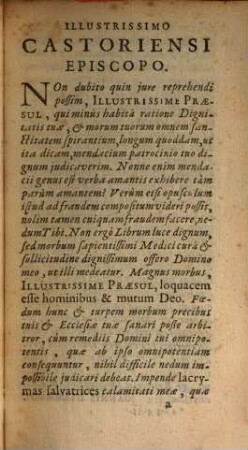 ILLUSTRISSIMO
CASTORIENSI
EPISCOPO.
NOn dubito quin jure reprehendi
possim, ILLUSTRISSIME PRÆ-
SUL, qui minus habitâ ratione Digni-
tatis tuæ, & morum tuorum omnem san-
ctitatem spirantium, longum quoddam, ut
ita dicam, mendacium patrocinio tuo di-
gnum judicaverim. Nonne enim menda-
cii genus est verba amantis exhibere tàm
parùm amantem? Verùm etsi opusculum
istud ad fraudem compositum videri possit,
nolim tamen cuiquam fraudem facere, ne-
dum Tibi. Non ergò Librum luce dignum,
sed morbum sapientissimi Medici curâ &
sollicitudine dignissimum offero Domino
meo, ut illi medeatur. Magnus morbus,
ILLUSTRISSIME PRÆSUL, loquacem
esse hominibus & mutum Deo. Fœ-
dum hunc & turpem morbum precibus
tuis & Ecclesiæ tuæ sanari posse arbi-
tror, cùm remediis Domini tui omnipo-
tentis, quæ ab ipso omnipotentiam
consequuntur, nihil difficile nedum im-
possibile judicari debeat. Impende lacry-
mas salvatrices calamitati meæ, quæ
a